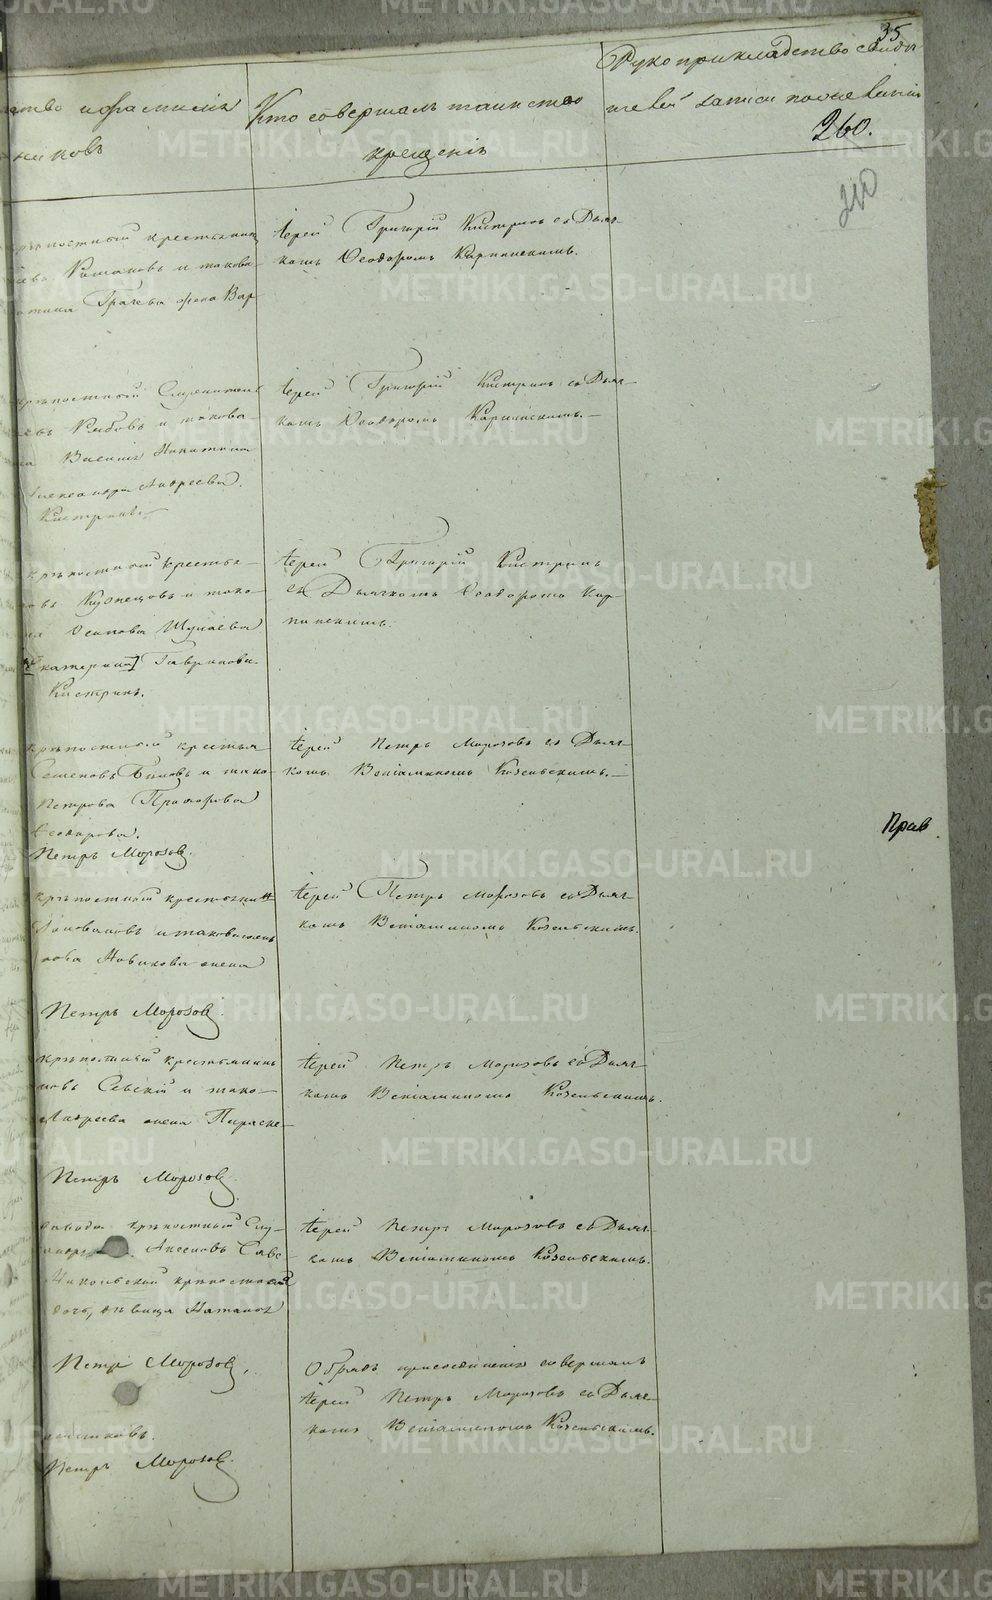 35
ство и фамилія
никовъ
Кто совершалъ таинство
крещенія
Рукоприкладство свидѣ
телей записи по желанію
260.
210
крѣпостный крестьянинъ
Романовъ и такова-
Грачева жена Вар
Іерей Григорій Кистринъ съ Дьяч-
комъ Ѳеодоромъ Карпинскимъ.
крѣпостный Служитель
Рябовъ и такова-
Василія Никитина
Александра Андреева.
Кистринъ.
Іерей Григорій Кистринъ съ Дьяч-
комъ Ѳеодоромъ Карпинскимъ.-
крѣпостный крестья-
Кузнецовъ и тако-
Осипова Шулаева
[Екатерина] Гаврилова.
Кистринъ.
Іерей Григорій Кистринъ
съ Дьячкомъ Ѳеодоромъ Кар
пинскимъ.
крѣпостный крестья
Семеновъ и тако-
Петрова Прохорова
Ѳеодорова.
Петръ Морозовъ.
Іерей Петръ Морозовъ съ Дьяч-
комъ Веніаминомъ Козельскимъ.-
Прав
крѣпостный крестьянин
и такова жена
Новикова жена
Петръ Морозовъ.
Іерей Петръ Морозовъ съ Дьяч-
комъ Веніаминомъ Козельскимъ.
крѣпостный крестьянинъ
новъ Севскій и тако-
Андреева жена Параске-
Петръ Морозовъ
Іерей Петръ Морозовъ съ Дьяч-
комъ Веніаминомъ Козельскимъ.
завода крѣпостный Слу-
Аксеновъ Саве-
Никольской крѣпостной
дочь, дѣвица Наталья
Петръ Морозовъ.
Іерей Петръ Морозовъ съ Дьяч-
комъ Веніаминомъ Козельскимъ.
Обрядъ присоединенія совершалъ
Іерей Петръ Морозовъ съ Дьяч-
комъ Веніаминомъ Козельскимъ.
Петръ Морозовъ.
METRIKI.GASO-URAL.RU